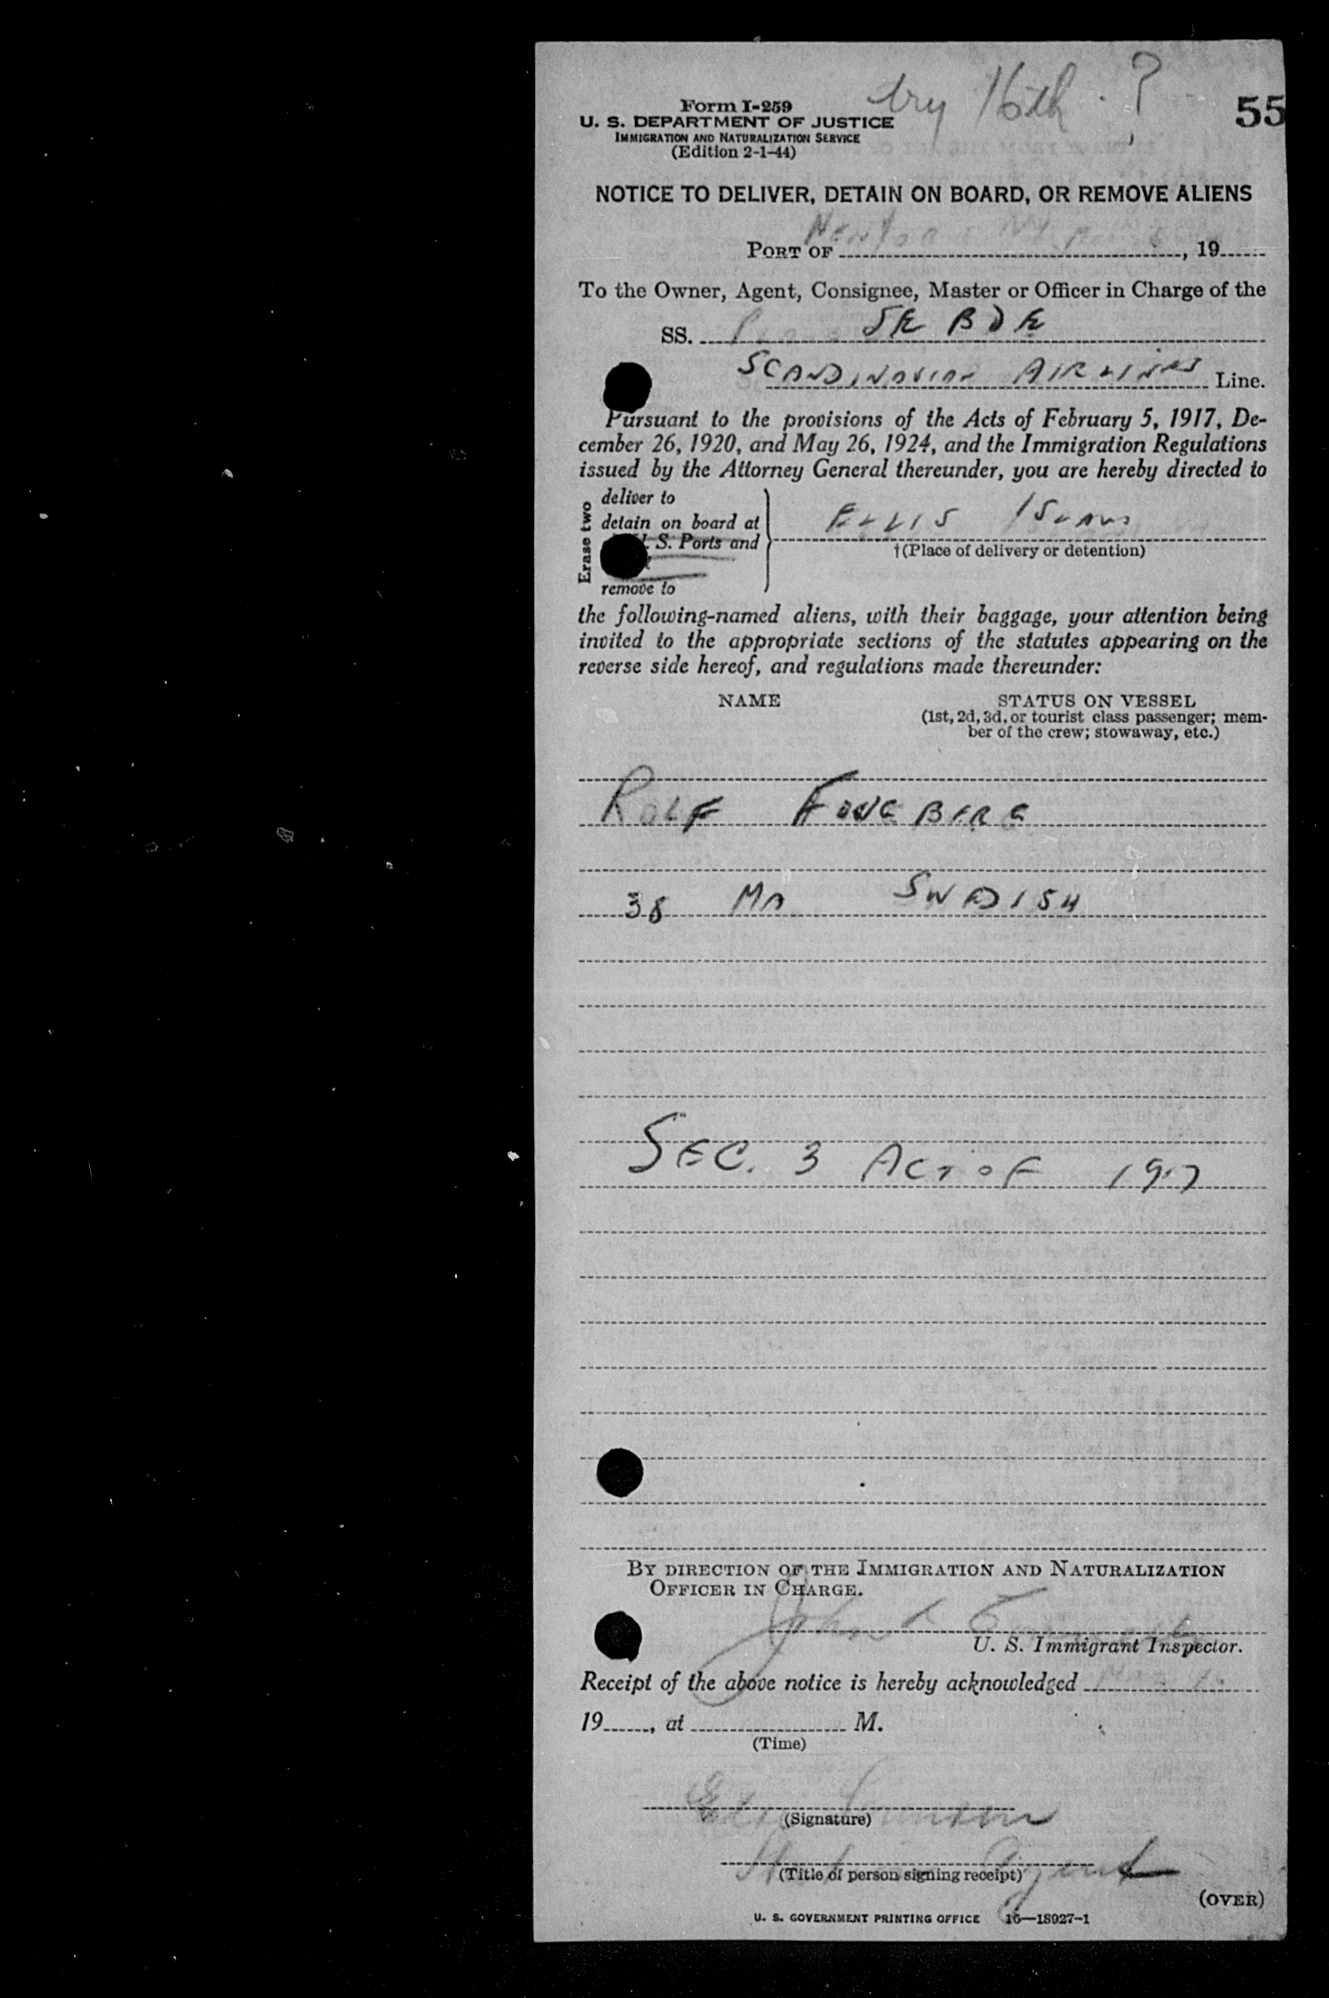 try 16th. ?
55
Form I-259
U. S. DEPARTMENT OF JUSTICE
IMMIGRATION AND NATURALIZATION SERVICE
(Edition 2-1-44)
NOTICE TO DELIVER, DETAIN ON BOARD, OR REMOVE ALIENS
PORT OF New York NY, 19
To the Owner, Agent, Consignee, Master or Officer in Charge of the
SS. SE BDE
SCANDINAVIAN AIRLINES Line.
Pursuant to the provisions of the Acts of February 5, 1917, De-
cember 26, 1920, and May 26, 1924, and the Immigration Regulations
issued by the Attorney General thereunder, you are hereby directed to
Erase two
deliver to
detain on board at
U. S. Ports and
remove to
ELLIS ISLAND
†(Place of delivery or detention)
the following-named aliens, with their baggage, your attention being
invited to the appropriate sections of the statutes appearing on the
reverse side hereof, and regulations made thereunder:
NAME STATUS ON VESSEL
(1st, 2d, 3d, or tourist class passenger; mem-
ber of the crew; stowaway, etc.)
ROLF
38 MA SWEDISH
SEC. 3 ACT OF 1917
BY DIRECTION OF THE IMMIGRATION AND NATURALIZATION
OFFICER IN CHARGE.
John
U. S. Immigrant Inspector.
Receipt of the above notice is hereby acknowledged
19, at M.
(Time)
(Signature)
Agent
(Title of person signing receipt)
(OVER)
U. S. GOVERNMENT PRINTING OFFICE 16—18927-1